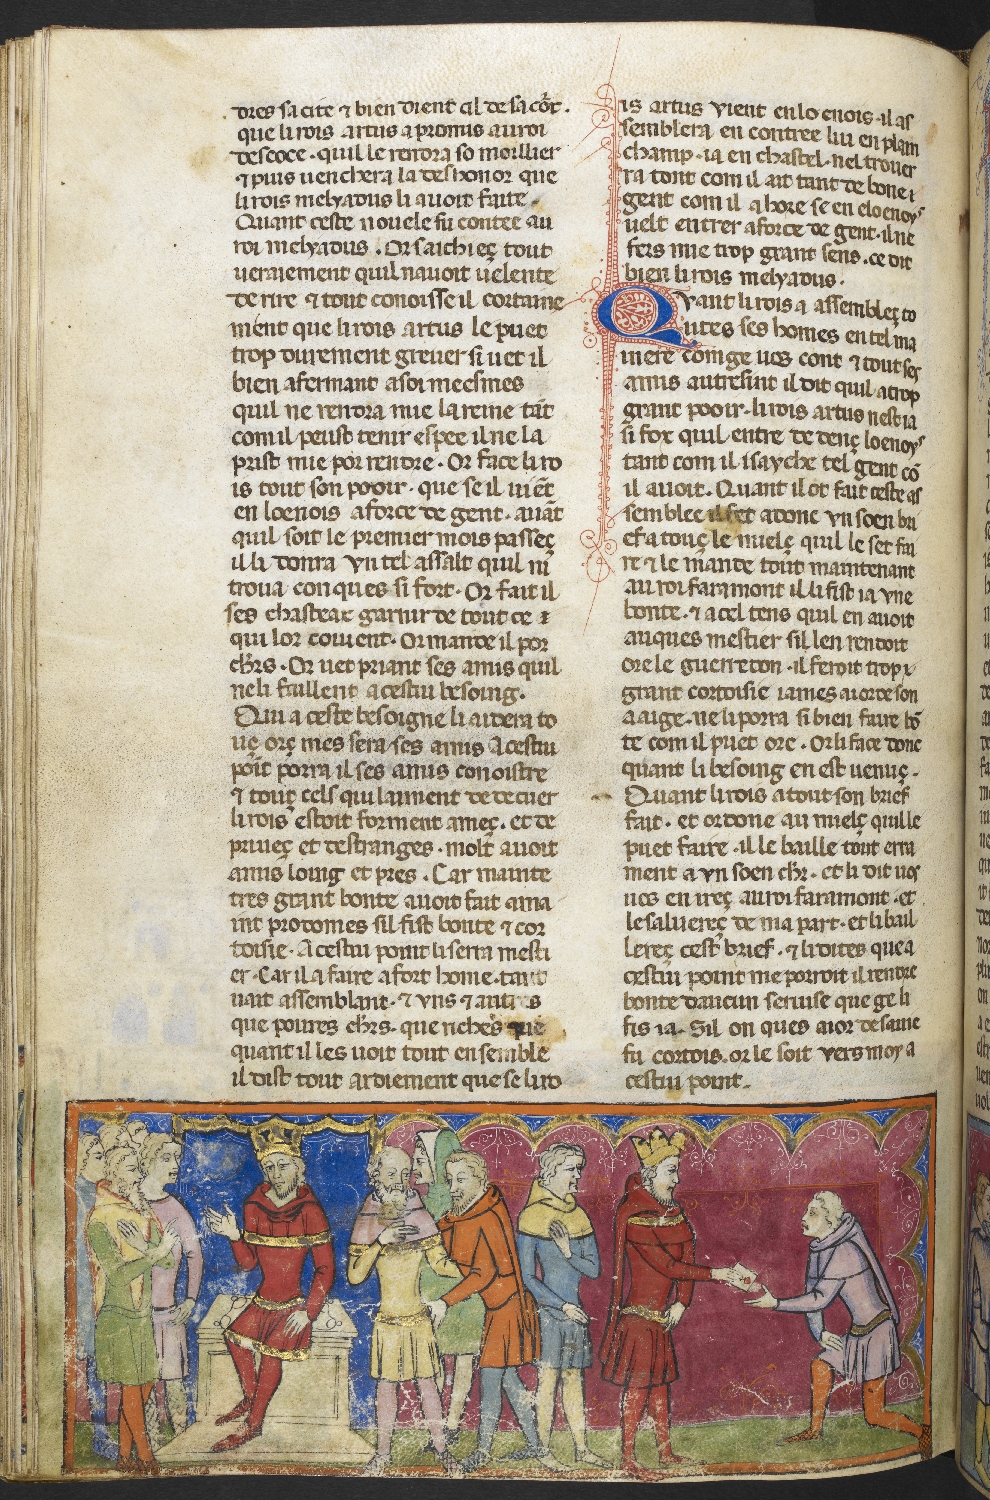 dres sa cite ⁊ bien dient cil de sa cort.
que li rois artus a promis au roi
descoce · quil le rendra so moillier
⁊ puis uenchera la deshonor que
li rois melyadus li auoit faite.
Quant ceste nouele fu contee au
roi melyadus. Or saichieç tout
ueraiement quil nauoit uelente
de rire ⁊ tout conoisse il certaine
ment que li rois artus le puet
trop durement greuer si uet il
bien afermant a soi meesmes
quil ne rendra mie la reine tāt
com il peust tenir espee il ne la
prist mie por rendre · Or face li ro
is tout son pooir · que se il uiēt
en loenois a force de gent · auāt
quil soit le premier mois passeç
il li donra vn tel assalt quil ni
troua conques si fort · Or fait il
ses chasteax garnir de tout ce
qui lor couient · Or mande il por
chrs · Or uet priant ses amis quil
ne li faillent a cestui besoing.
Qui a ceste besoigne li aidera to
ue orç mes sera ses amis A cestui
poīt porra il ses amis conoistre
⁊ touç cels qui laiment de de cuer
li rois estoit forment ameç · et de
priueç et destranges · molt auoit
amis loing et pres · Car mainte
tres grant bonte auoit fait a ma
int prodomes sil fist bonte ⁊ cor
toisie · A cestui point li serra mesti
er · Car il a faire a fort home · tant
uait assemblant · ⁊ vns ⁊ autres
que poures chrs · que riches que
quant il les uoit tout ensemble
il dist tout ardiement que se li ro
is artus vient en loenois · il as
semblera en contree lui en plain
champ · ia en chastel · nel trouer
ra tout com il ait tant de bone
gent com il a hore se en eloenoys
uelt entrer a force de gent · il ne
fera mie trop grant sens · ce dit
bien li rois melyadus ·
Qvant li rois a assembleç to
utes ses homes en tel ma
niere com ge uos cont ⁊ tout ses
amis autresint il dit quil a trop
grant pooir · li rois artus nest ia
si fox quil entre de denç loenoys
tant com il i sayche tel gent cō
il auoit · Quant il ot fait ceste as
semblee il fet adonc vn soen bri
ef a touç le mielç quil le set fai
re ⁊ le mande tout maintenant
au roi faramont il li fist ia vne
bonte · ⁊ a cel tens quil en auoit
auques mestier sil len rendoit
ore le guerredon · il feroit trop
grant cortoisie iames a ior de son
aaige · ne li porra si bien faire bō
te com il puet ore · Or li face donc
quant li besoing en est uenuç ·
Quant li rois a tout son brief
fait · et ordone au mielç quil le
puet faire · il le baille tout erra
ment a vn soen chr · et li dit uos
uos en ireç au roi faramont · et
le saluereç de ma part · et li bail
lereç cest brief · ⁊ li dites que a
cestui point me porroit il rendre
bonte daucun seruise que ge li
fis ia · Sil on ques a ior de sa uie
fu cortois · or le soit vers moy a
cestui point ·